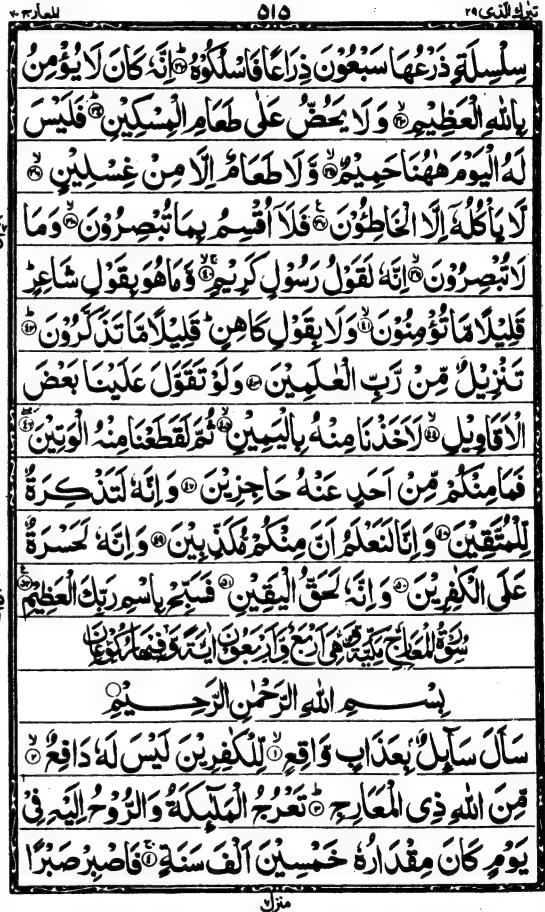 تبٰرك الذی ٢٩ ٥١٥ المعارج ٧٠
سِلْسِلَةٍ ذَرْعُهَا سَبْعُوْنَ ذِرَاعًا فَاسْلُكُوْهُ ؕ﴿۳۲﴾ اِنَّهٗ كَانَ لَا يُؤْمِنُ
بِاللّٰهِ الْعَظِيْمِ ۙ﴿۳۳﴾ وَلَا يَحُضُّ عَلٰى طَعَامِ الْمِسْكِيْنِ ؕ﴿۳۴﴾ فَلَيْسَ
لَهُ الْيَوْمَ هٰهُنَا حَمِيْمٌ ۙ﴿۳۵﴾ وَّلَا طَعَامٌ اِلَّا مِنْ غِسْلِيْنٍ ۙ﴿۳۶﴾
لَّا يَاْكُلُهٗۤ اِلَّا الْخَاطِـُٔوْنَ ﴿۳۷﴾ فَلَاۤ اُقْسِمُ بِمَا تُبْصِرُوْنَ ۙ﴿۳۸﴾ وَمَا
لَا تُبْصِرُوْنَ ۙ﴿۳۹﴾ اِنَّهٗ لَقَوْلُ رَسُوْلٍ كَرِيْمٍ ۚۙ﴿۴۰﴾ وَّمَا هُوَ بِقَوْلِ شَاعِرٍ ؕ
قَلِيْلًا مَّا تُؤْمِنُوْنَ ۙ﴿۴۱﴾ وَلَا بِقَوْلِ كَاهِنٍ ؕ قَلِيْلًا مَّا تَذَكَّرُوْنَ ؕ﴿۴۲﴾
تَنْزِيْلٌ مِّنْ رَّبِّ الْعٰلَمِيْنَ ﴿۴۳﴾ وَلَوْ تَقَوَّلَ عَلَيْنَا بَعْضَ
الْاَقَاوِيْلِ ۙ﴿۴۴﴾ لَاَخَذْنَا مِنْهُ بِالْيَمِيْنِ ۙ﴿۴۵﴾ ثُمَّ لَقَطَعْنَا مِنْهُ الْوَتِيْنَ ﴿۴۶﴾
فَمَا مِنْكُمْ مِّنْ اَحَدٍ عَنْهُ حَاجِزِيْنَ ﴿۴۷﴾ وَاِنَّهٗ لَتَذْكِرَةٌ
لِّلْمُتَّقِيْنَ ﴿۴۸﴾ وَاِنَّا لَنَعْلَمُ اَنَّ مِنْكُمْ مُّكَذِّبِيْنَ ﴿۴۹﴾ وَاِنَّهٗ لَحَسْرَةٌ
عَلَى الْكٰفِرِيْنَ ﴿۵۰﴾ وَاِنَّهٗ لَحَقُّ الْيَقِيْنِ ﴿۵۱﴾ فَسَبِّحْ بِاسْمِ رَبِّكَ الْعَظِيْمِ ﴿۵۲﴾
سُوْرَةُ الْمَعَارِجِ مَكِّيَّةٌ وَّهِيَ اَرْبَعٌ وَّاَرْبَعُوْنَ اٰيَةً وَّفِيْهَا رُكُوْعَانِ
بِسْمِ اللّٰهِ الرَّحْمٰنِ الرَّحِيْمِ
سَاَلَ سَآئِلٌۢ بِعَذَابٍ وَّاقِعٍ ۙ﴿۱﴾ لِّلْكٰفِرِيْنَ لَيْسَ لَهٗ دَافِعٌ ۙ﴿۲﴾
مِّنَ اللّٰهِ ذِى الْمَعَارِجِ ؕ﴿۳﴾ تَعْرُجُ الْمَلٰٓئِكَةُ وَالرُّوْحُ اِلَيْهِ فِىْ
يَوْمٍ كَانَ مِقْدَارُهٗ خَمْسِيْنَ اَلْفَ سَنَةٍ ۚ﴿۴﴾ فَاصْبِرْ صَبْرًا
منزل